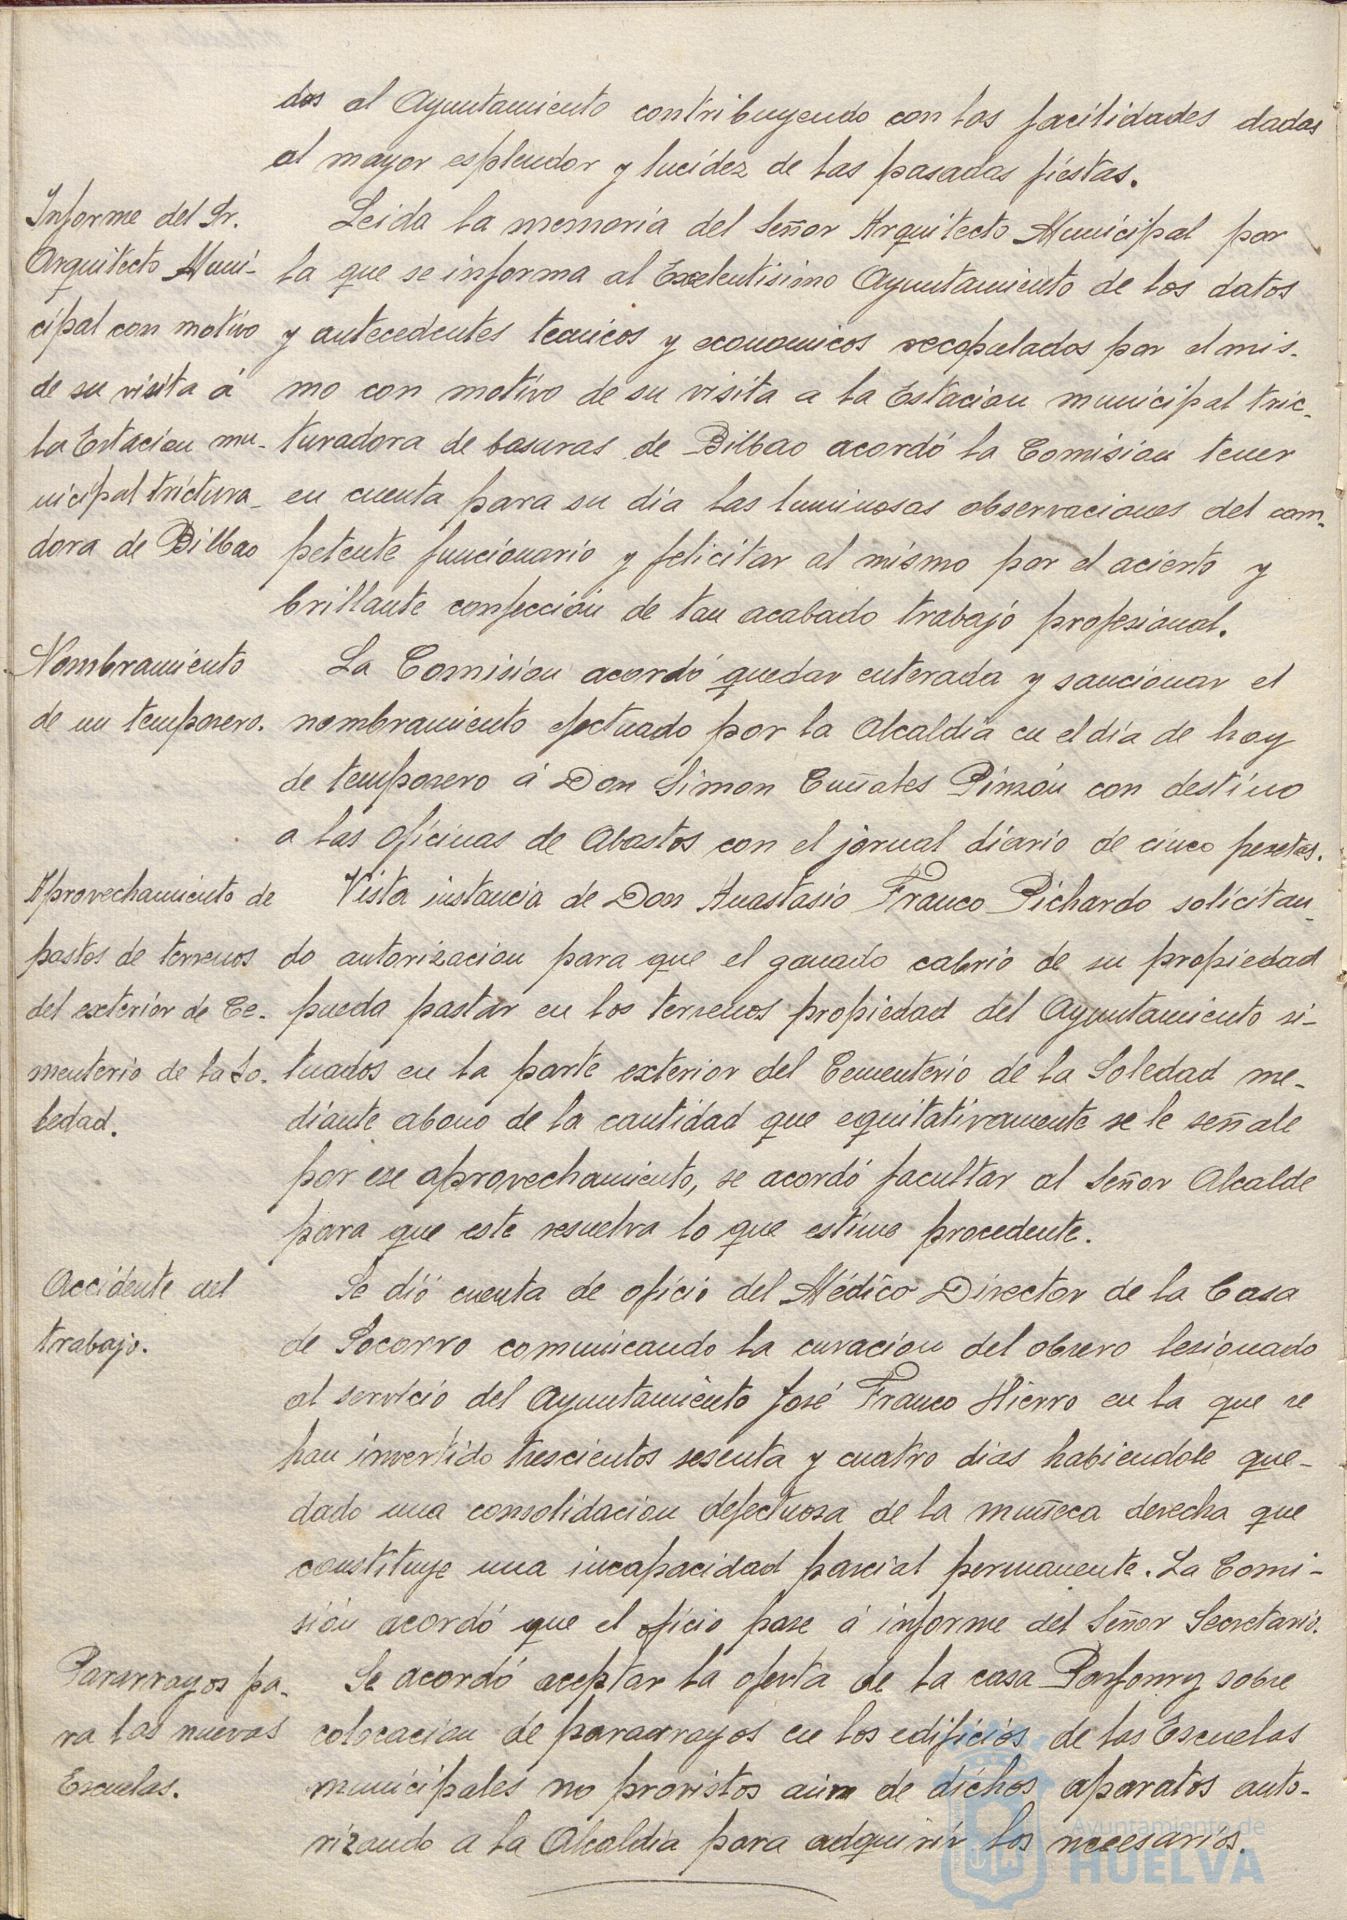 dos al Ayuntamiento contribuyendo con las facilidades dadas
al mayor esplendor y lucidez de las pasadas fiestas.
Informe del Sr.
Arquitecto Muni-
cipal con motivo
de su visita á
la Estacion mu-
nicipal trictura-
dora de Bilbao
Leida la memoria del Señor Arquitecto Municipal por
la que se informa al Exelentisimo Ayuntamiento de los datos
y antecedentes tecnicos y economicos recopulados por el mis-
mo con motivo de su visita a la Estacion municipal tric-
turadora de basuras de Bilbao acordó la Comision tener
en cuenta para su dia las luminosas observaciones del com-
petente funcionario y felicitar al mismo por el acierto y
brillante confección de tan acabado trabajo profesional.
Nombramiento
de un temporero.
La Comision acordó quedar enterada y sancionar el
nombramiento efectuado por la Alcaldia en el dia de hoy
de temporero á Don Simon Cuñates Pinzón con destino
a las Oficinas de Abastos con el jornal diario de cinco pesetas.
Aprovechamiento de
pastos de terrenos
del exterior de Ce-
menterio de la So-
ledad.
Vista instancia de Don Anastasio Franco Pichardo solicitan-
do autorizacion para que el ganado cabrio de su propiedad
pueda pastar en los terrenos propiedad del Ayuntamiento si-
tuados en la parte exterior del Cementerio de la Soledad me-
diante abono de la cantidad que equitativamente se le señale
por ese aprovechamiento, se acordó facultar al Señor Alcalde
para que este resuelva lo que estime procedente.
Accidente del
trabajo.
Se dió cuenta de oficio del Médico Director de la Casa
de Socorro comunicando la curacion del obrero lesionado
al servicio del Ayuntamiento José Franco Hierro en la que se
han invertido trescientos sesenta y cuatro dias habiendole que-
dado una consolidacion defectuosa de la muñeca derecha que
constituye una incapacidad parcial permanente. La Comi-
sión acordó que el oficio pase á informe del Señor Secretario.
Pararrayos pa-
ra las nuevas
Escuelas.
Se acordó aceptar la oferta de la casa Parfonry sobre
colocacion de pararrayos en los edificios de las Escuelas
municipales no provistos aún de dichos aparatos auto-
rizando a la Alcaldia para adquirir los necesarios.
Ayuntamiento de
HUELVA